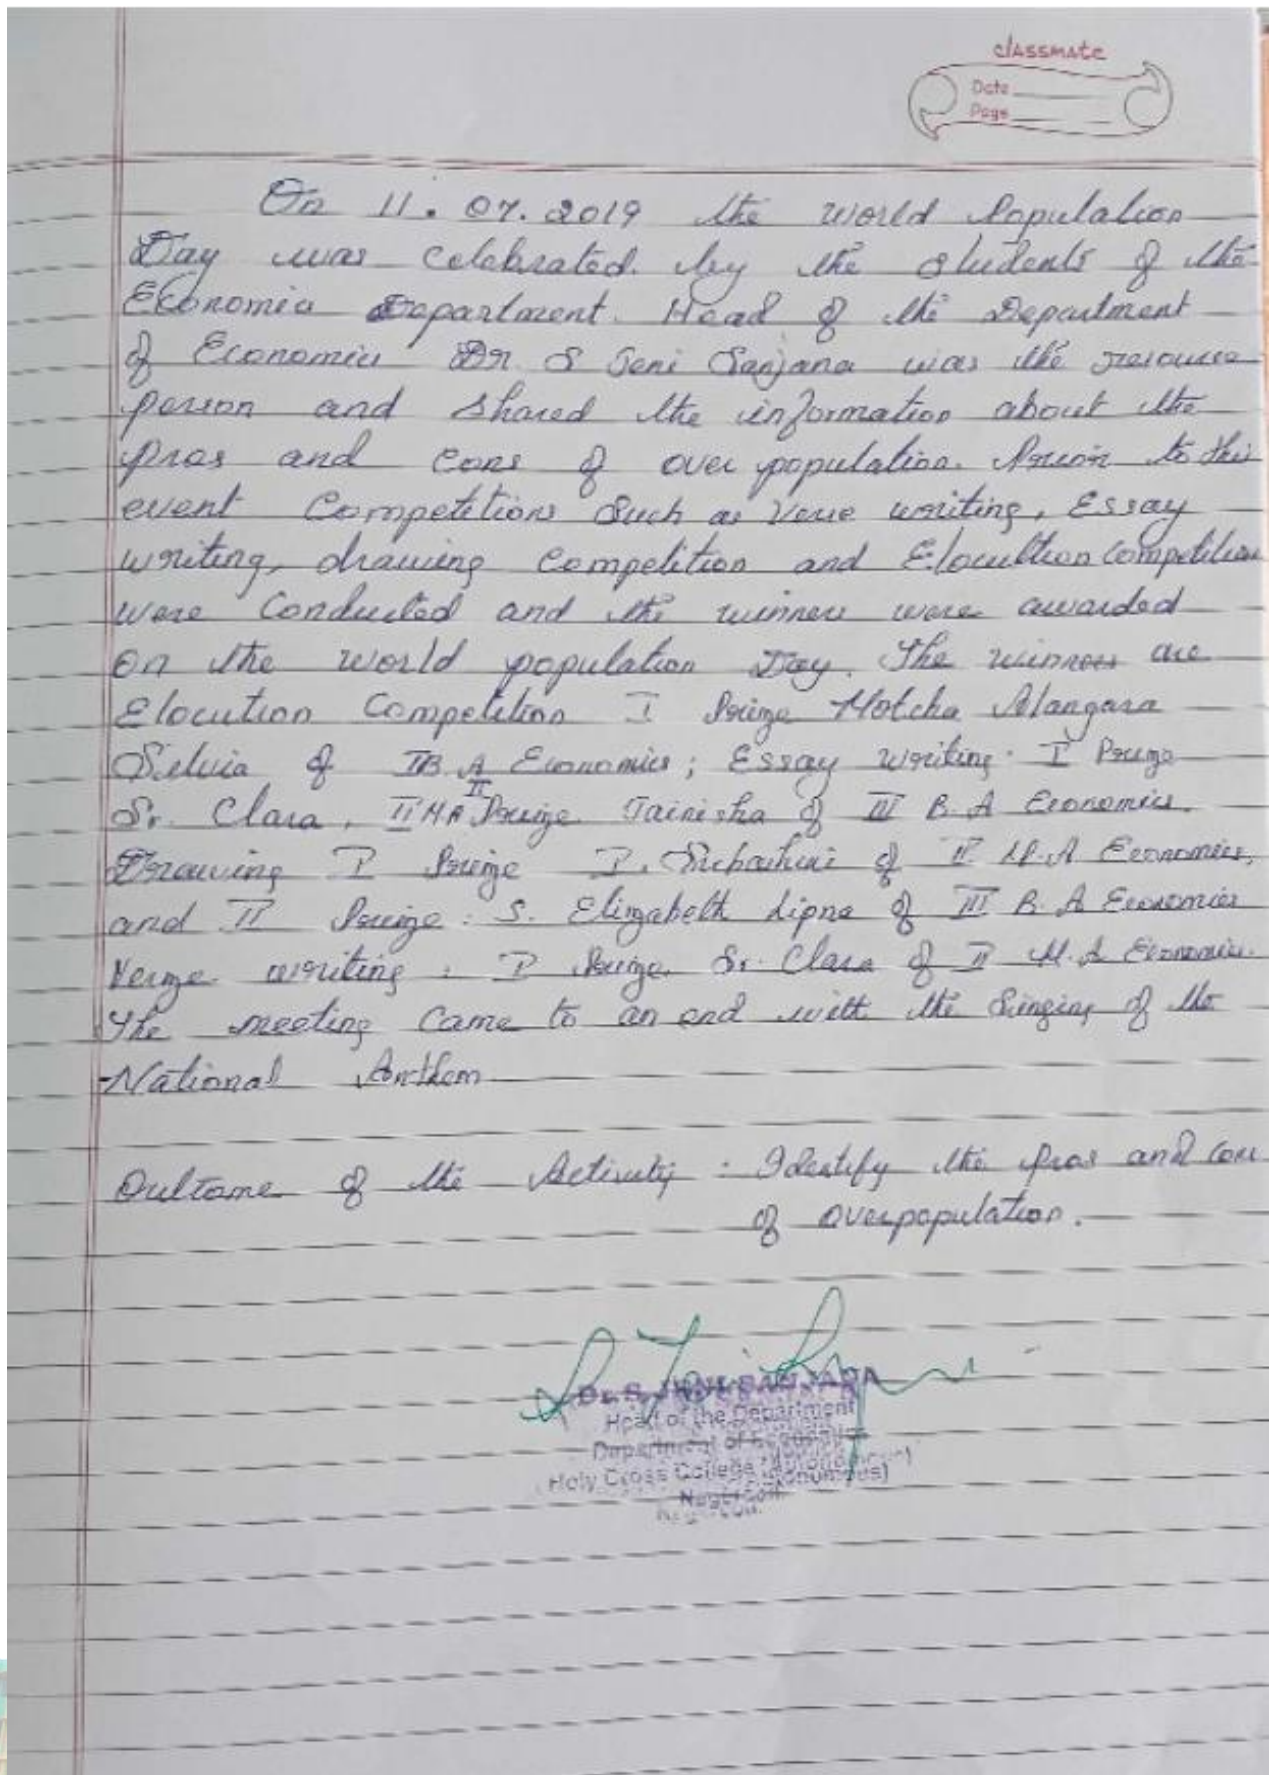 classmate
Date
Page
On 11.07.2019 the World Population
Day was celebrated by the students of the
Economics Department. Head of the Department
of Economics Dr. S Jeni Sanjana was the resource
person and shared the information about the
pros and cons of over population. Prior to this
event Competitions Such as Verse writing, Essay
writing, drawing Competition and Elocution Competition
were Conducted and the winners were awarded
on the World population Day. The winners are
Elocution Competition I Prize Motcha Alangara
Selvia of IB.A Economics; Essay writing. I Prize
Sr. Clara, II M.A II Prize of III B.A Economics.
Drawing I Prize of II M.A Economics,
and II Prize: S. Elizabeth Lipna of III B.A Economics
Verze writing: I Prize Sr. Clara of II M.A Economics.
The meeting Came to an end with the Singing of the
National Anthem
Outcome of the Activity: Identify the pros and cons
of overpopulation.
Dr. S. JENI SANJANA
Head of the Department
Department of Economics
Holy Cross College (Autonomous)
Nagercoil.